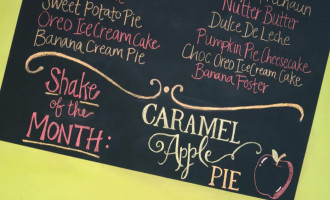 Sweet Potato Pie
Oreo Ice Cream Cake
Banana Cream Pie
Nutter Butter
Dulce De Leche
Pumpkin Pie Cheesecake
Choc Oreo Ice Cream Cake
Banana Foster
Shake
of the
MONTH:
CARAMEL
Apple
PIE